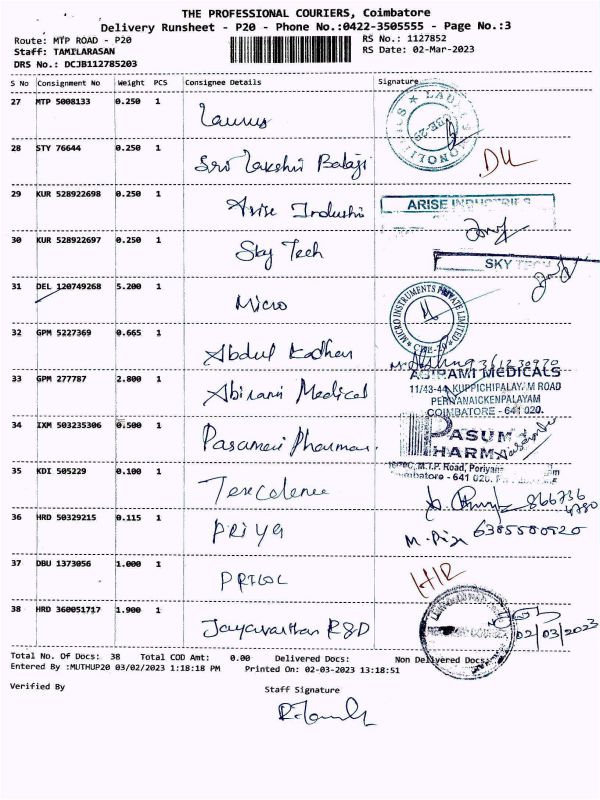 THE PROFESSIONAL COURIERS, Coimbatore
Delivery Runsheet - P20 - Phone No.:0422-3505555 - Page No.:3
Route: MTP ROAD - P20
RS No.: 1127852
Staff: TAMILARASAN
RS Date: 02-Mar-2023
DRS No.: DCJB112785203
S No Consignment No Weight PCS Consignee Details Signature
27 MTP 5008133 0.250 1 Laurus
28 STY 76644 0.250 1 Sri Lakshmi Balaji
DL
29 KUR 528922698 0.250 1 Arise Industri
ARISE INDUSTRIES
30 KUR 528922697 0.250 1 Sky Tech
SKY TECH
31 DEL 120749268 5.200 1 Micro
MICRO INSTRUMENTS PRIVATE LIMITED
32 GPM 5227369 0.665 1 Abdul Kadhar
33 GPM 277787 2.800 1 Abirami Medical
ABIRAMI MEDICALS
11/43-44, KUPPICHIPALAYAM ROAD
PERIYANAICKENPALAYAM
COIMBATORE - 641 020.
34 IXM 503235306 0.500 1
PASUM
PHARMA
M.T.P. Road, Periyan
35 KDI 505229 0.100 1
36 HRD 50329215 0.115 1 PRIYA
6385580920
37 DBU 1373056 1.000 1 PRICOL
38 HRD 360051717 1.900 1 R&D
02/03/2023
Total No. Of Docs: 38 Total COD Amt: 0.00 Delivered Docs: Non Delivered Docs:
Entered By :MUTHUP20 03/02/2023 1:18:18 PM Printed On: 02-03-2023 13:18:51
Verified By Staff Signature